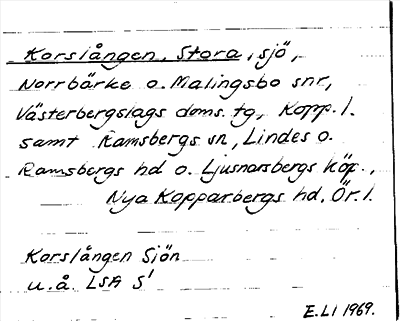 Korslången, Stora, sjö,
Norrbärke o. Malingsbo snr,
Västerbergslags doms. tg, Kopp. l.
samt Ramsbergs sn, Lindes o.
Ramsbergs hd o. Ljusnarsbergs köp.,
Nya Kopparbergs hd, Ör. l.
Korslången Sjön
u.å. LSA S1
E.LI 1969.